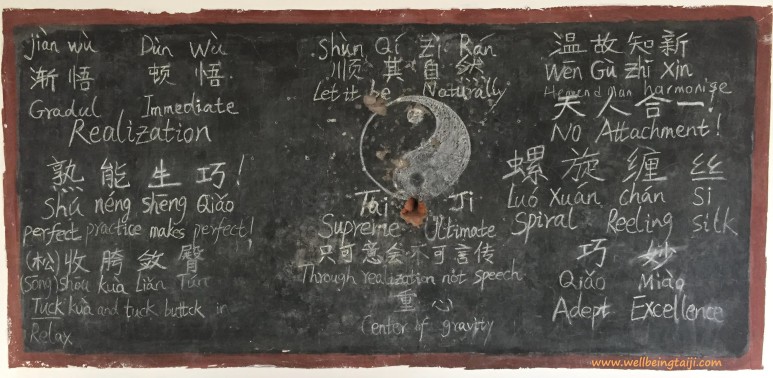 jiàn wù Dùn Wù
渐 悟 顿 悟
Gradul Immediate
Realization
熟 能 生 巧!
Shú néng shēng Qiǎo
perfect practice makes perfect!
(松)收 胯 敛 臀
(Sōng) shōu kuà Liǎn Tún
Tuck kuà and tuck buttck in
Relax
Shùn Qí Zì Rán
顺 其 自 然
Let it be Naturally
Tai Ji
Supreme Ultimate
只可意会不可言传
Through realization not speech
重 心
Center of gravity
温 故 知 新
Wēn Gù zhī Xīn
Heaven and man harmonise
天 人 合 一!
No Attachment!
螺 旋 缠 丝
Luó Xuán chán Sī
Spiral Reeling silk
巧 妙
Qiǎo Miào
Adept Excellence
www.wellbeingtaiji.com